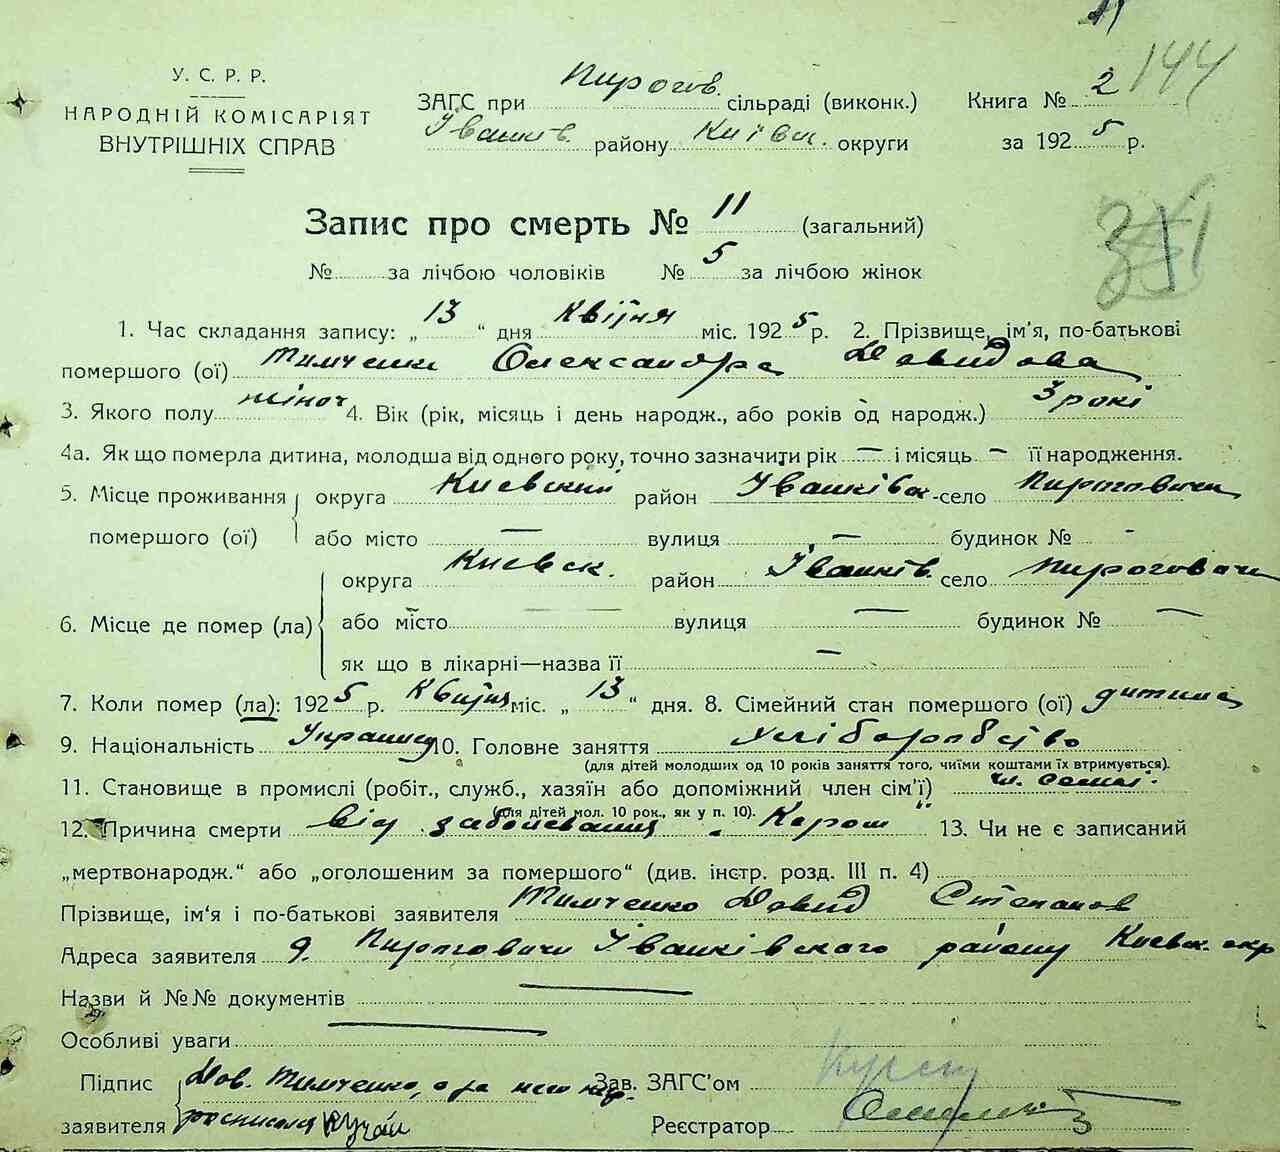 У. С. Р. Р.
НАРОДНІЙ КОМІСАРІЯТ
ВНУТРІШНІХ СПРАВ
ЗАГС при Пирогов. сільраді (виконк.)
Іванків. району Київськ. округи
Книга № 2 144
за 1925 р.
Запис про смерть № 11 (загальний)
№ за лічбою чоловіків № 5 за лічбою жінок
1. Час складання запису: „ 13 “ дня Квітня міс. 1925 р. 2. Прізвище, ім’я, по-батькові
помершого (ої) Тимченко Олександра Давидова
3. Якого полу жіноч 4. Вік (рік, місяць і день народж., або років од народж.) 3 рокі
4а. Як що померла дитина, молодша від одного року, точно зазначити рік — і місяць — її народження.
5. Місце проживання помершого (ої) округа Киевский район Іванківск село Пироговичи
або місто — вулиця — будинок № -
6. Місце де помер (ла) округа Киевск. район Іванків. село Пироговичи
або місто — вулиця — будинок № —
як що в лікарні—назва її —
7. Коли помер (ла): 1925 р. Квітня міс. „ 13 “ дня. 8. Сімейний стан помершого (ої) дитина
9. Національність 10. Головне заняття хліборобство
(для дітей молодших од 10 років заняття того, чиїми коштами їх втримується).
11. Становище в промислі (робіт., служб., хазяїн або допоміжний член сім’ї)
(для дітей мол. 10 рок., як у п. 10).
12. Причина смерти від заболевания „Корош“ 13. Чи не є записаний
„мертвонародж.“ або „оголошеним за помершого“ (див. інстр. розд. III п. 4)
Прізвище, ім’я і по-батькові заявителя Тимченко Давид Степанов
Адреса заявителя Пироговичи Іванківского району Киевск. окр
Назви й №№ документів —
Особливі уваги —
Підпис заявителя Дав. Тимченко, а за него
росписался Кучай
Зав. ЗАГС’ом
Реєстратор